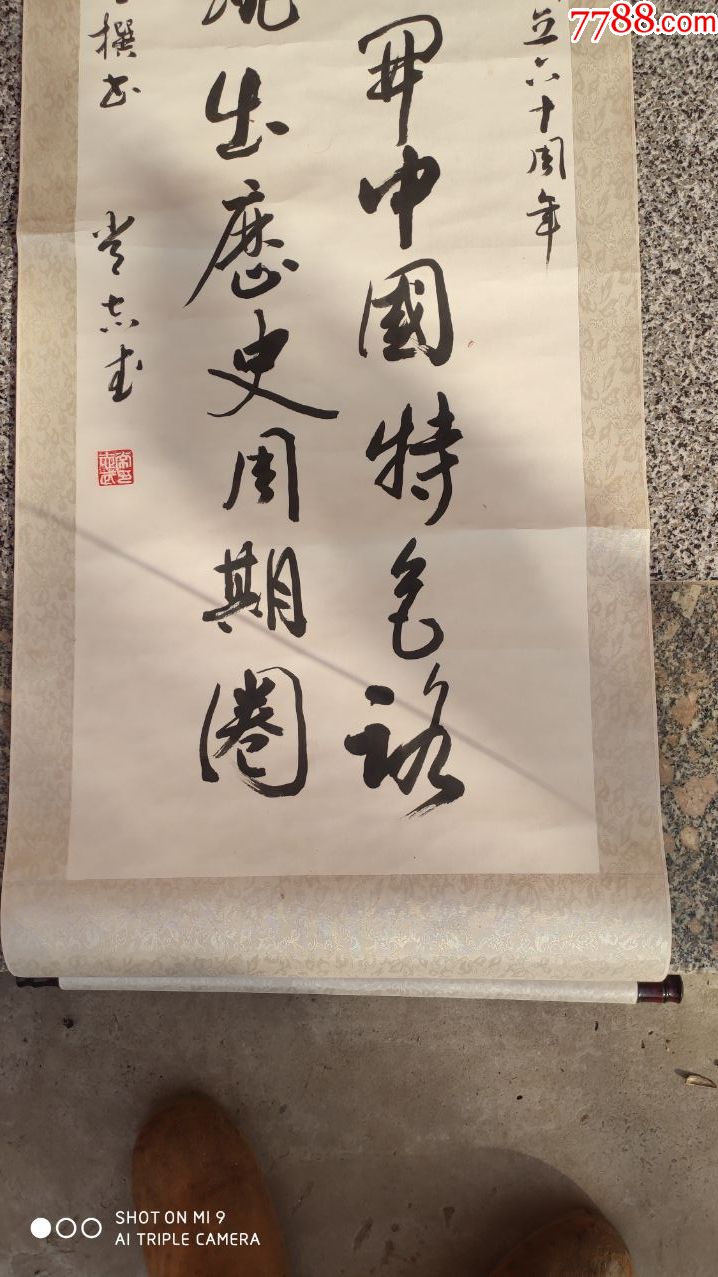 7788.com
立六十周年
开中國特色路
出歷史周期圈
撰书
常志武
SHOT ON MI 9
AI TRIPLE CAMERA